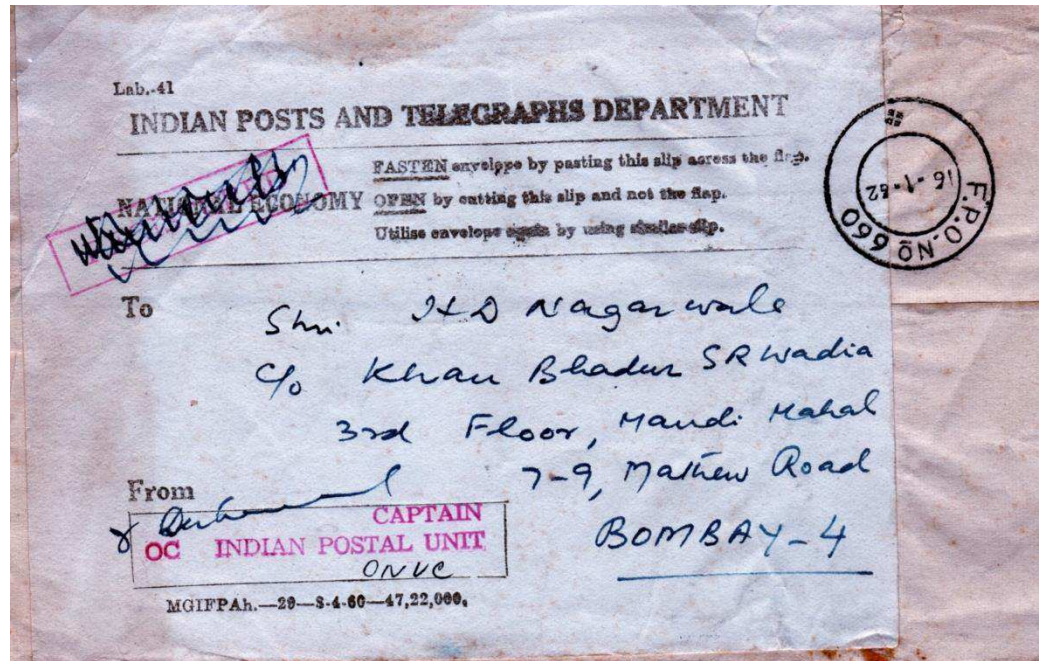 Lab.-41
INDIAN POSTS AND TELEGRAPHS DEPARTMENT
FASTEN envelope by pasting this slip across the flap.
NATIONAL ECONOMY OPEN by cutting this slip and not the flap.
Utilise envelope again by using similar slip.
F.P.O. NO 660
16-1-62
To
Shri. H D Nagarwala
C/o Khan Bhadur S R Wadia
3rd Floor, Mandi Mahal
7-9, Mathew Road
BOMBAY-4
From
CAPTAIN
OC INDIAN POSTAL UNIT
ONUC
MGIFPAh.—29—S-4-60—47,22,000.